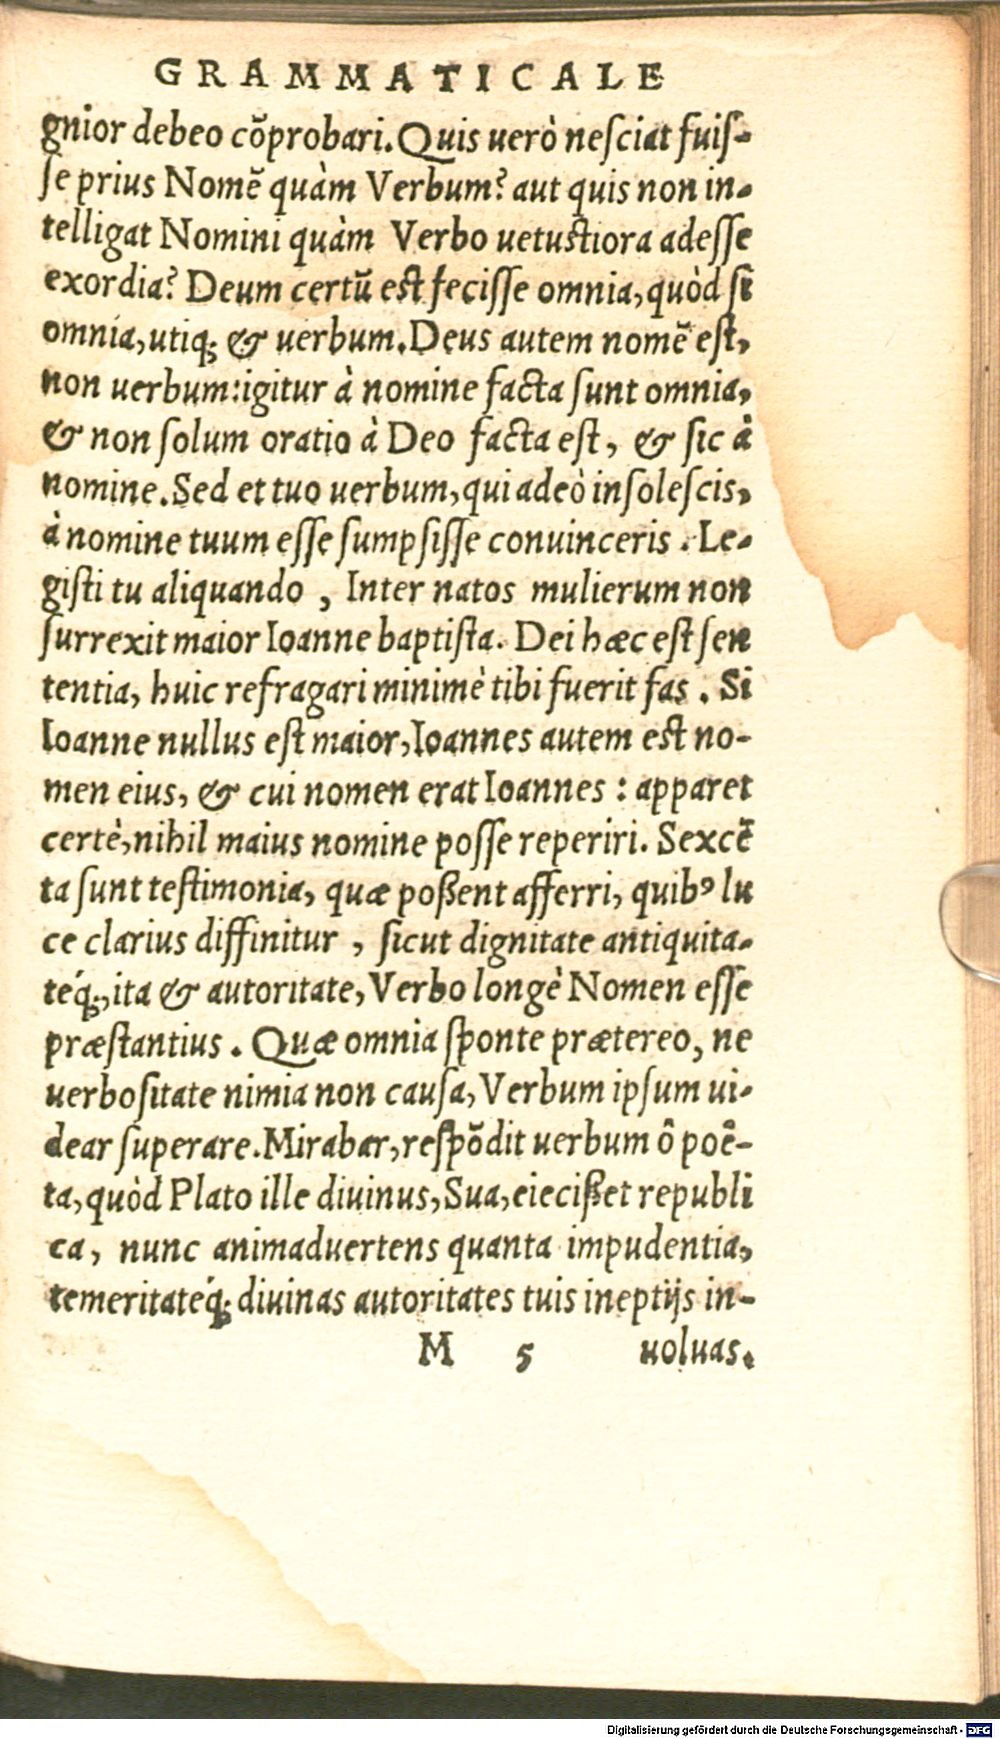 GRAMMATICALE
gnior debeo cõprobari. Quis uerò neſciat fuiſ-
ſe prius Nomẽ quàm Verbum? aut quis non in-
telligat Nomini quàm Verbo uetuſtiora adeſſe
exordia? Deum certũ eſt feciſſe omnia, quòd ſi
omnia, utiq; & uerbum. Deus autem nomẽ eſt,
non uerbum: igitur à nomine facta ſunt omnia,
& non ſolum oratio à Deo facta eſt, & ſic à
nomine. Sed et tuo uerbum, qui adeò inſoleſcis,
à nomine tuum eſſe ſumpſiſſe conuinceris. Le-
giſti tu aliquando, Inter natos mulierum non
ſurrexit maior Ioanne baptiſta. Dei hæc eſt ſen
tentia, huic refragari minimè tibi fuerit fas. Si
Ioanne nullus eſt maior, Ioannes autem eſt no-
men eius, & cui nomen erat Ioannes: apparet
certè, nihil maius nomine poſſe reperiri. Sexcẽ
ta ſunt teſtimonia, quæ poßent afferri, quibꝰ lu
ce clarius diffinitur, ſicut dignitate antiquita-
téq;, ita & autoritate, Verbo longè Nomen eſſe
præſtantius. Quæ omnia ſponte prætereo, ne
uerboſitate nimia non cauſa, Verbum ipſum ui-
dear ſuperare. Mirabar, reſpõdit uerbum ô poê-
ta, quòd Plato ille diuinus, Sua, eiecißet republi
ca, nunc animaduertens quanta impudentia,
temeritatéq; diuinas autoritates tuis ineptijs in-
M 5 uoluas.
Digitalisierung gefördert durch die Deutsche Forschungsgemeinschaft - DFG